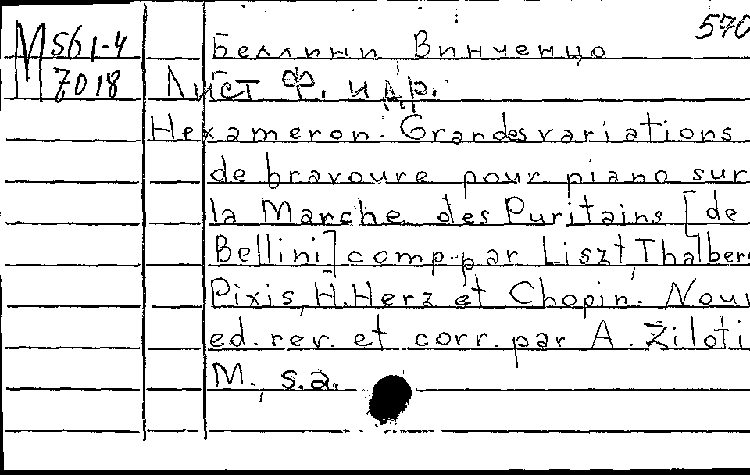 М 561-4 Беллини Винченцо 570
7018 Лист Ф. и др.
Hexameron. Grandes variations
de bravoure pour piano sur
la Marche des Puritains [de
Bellini] comp. par Liszt, Thalberg
Pixis, H. Herz et Chopin. Nouv
ed. rev. et corr. par A. Ziloti
М., s.a.